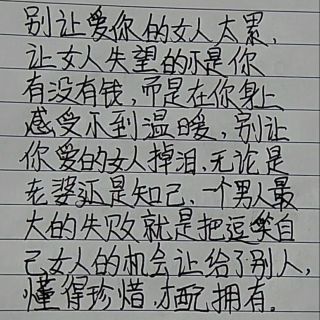 别让爱你的女人太累,
让女人失望的不是你
有没有钱,而是在你身上
感受不到温暖,别让
你爱的女人掉泪,无论是
老婆还是知己,一个男人最
大的失败就是把逗笑自
己女人的机会让给了别人,
懂得珍惜,才配拥有。